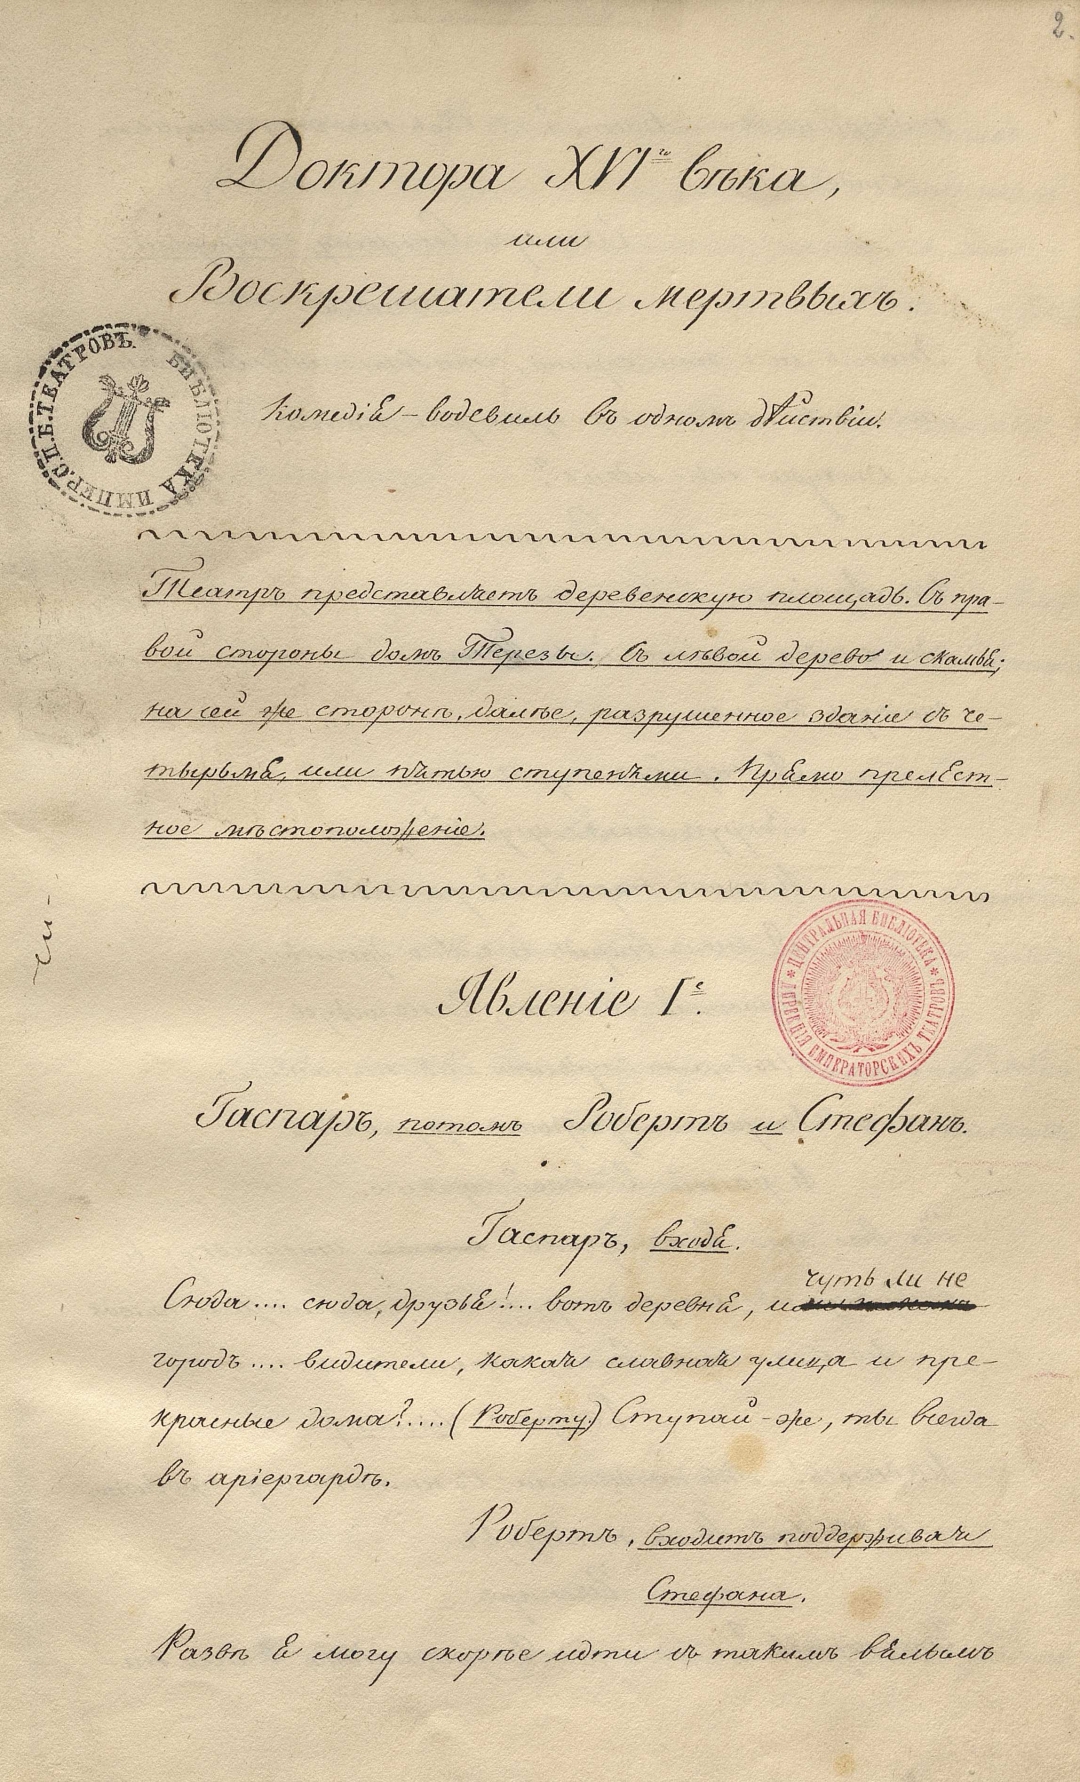 2.
Доктора XVI го вѣка,
или
Воскрешатели мертвыхъ.
БИБЛІОТЕКА ИМПЕР. С.П.Б. ТЕАТРОВЪ.
Комедія-водевиль въ одномъ дѣйствіи.
Театръ представляетъ деревенскую площадь. Съ пра-
вой стороны домъ Терезы. Съ лѣвой дерево и скамья;
на сей же сторонѣ, далѣе, разрушенное зданіе съ че-
тырьмя, или пятью ступенями. Прямо прелест-
ное мѣстоположеніе.
ЦЕНТРАЛЬНАЯ БИБЛІОТЕКА ИМПЕРАТОРСКИХЪ ТЕАТРОВЪ
Явленіе I е.
Гаспаръ, потомъ Робертъ и Стефанъ.
Гаспаръ, входя.
чуть ли не
Сюда.... сюда, друзья!... вотъ деревня, и
городъ.... видители, какая славная улица и пре-
красные дома?.... (Роберту.) Ступай-же, ты всегда
въ аріергардѣ.
Робертъ, входитъ поддерживая
Стефана.
Развѣ я могу скорѣе идти съ такимъ вялымъ